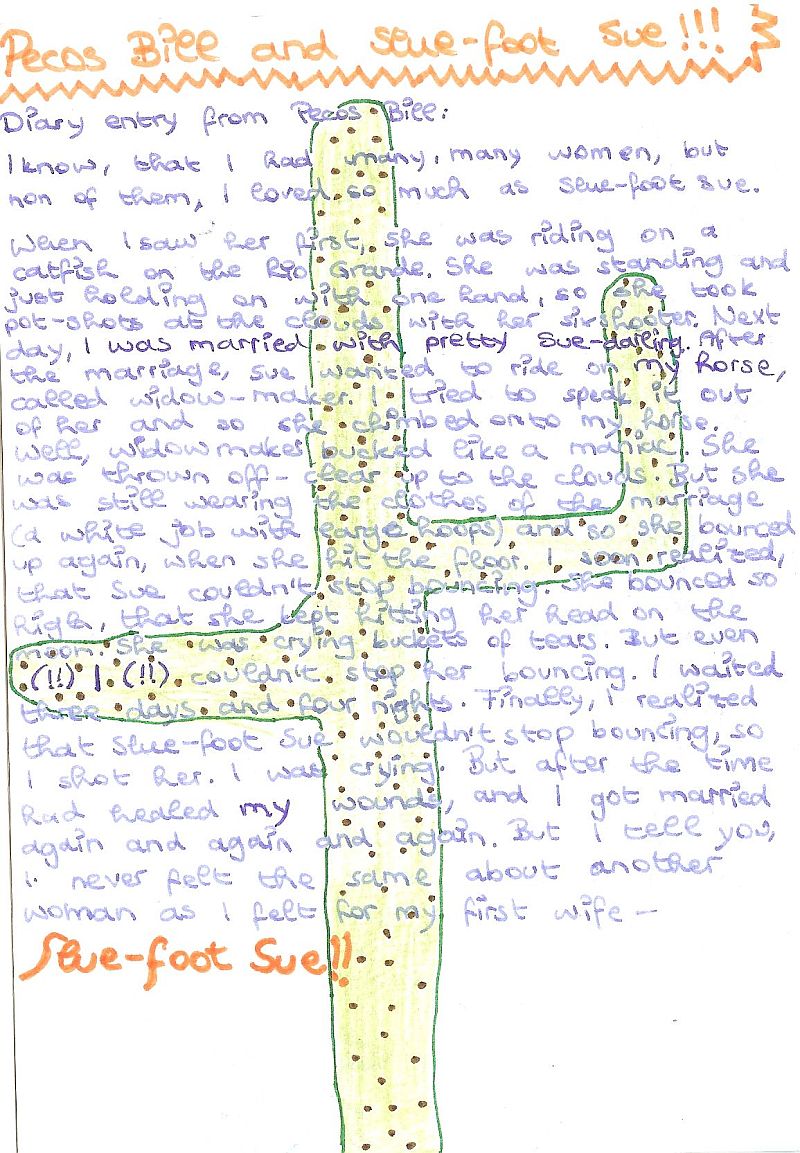 Pecos Bill and Slue-foot Sue!!!
Diary entry from Pecos Bill:
I know, that I had many, many women, but
non of them, I loved so much as Slue-foot Sue.
When I saw her first, she was riding on a
catfish on the Rio Grande. She was standing and
just holding on with one hand, so she took
pot-shots at the clouds with her sixshooter. Next
day, I was married with pretty Sue-darling. After
the marriage, Sue wanted to ride on my horse,
called widow-maker. I tried to speak it out
of her and so she climbed onto my horse.
Well, widowmaker bucked like a maniac. She
was thrown off - clear up to the clouds. But she
was still wearing the clothes of the marriage
(a white job with large hoops) and so she bounced
up again, when she hit the floor. I soon realized,
that Sue couldn't stop bouncing. She bounced so
high, that she kept hitting her head on the
moon. She was crying buckets of tears. But even
(!!) I (!!) couldn't stop her bouncing. I waited
three days and four nights. Finally, I realized
that Slue-foot Sue wouldn't stop bouncing, so
I shot her. I was crying. But after the time
had healed my wounds, and I got married
again and again and again. But I tell you,
I never felt the same about another
woman as I felt for my first wife –
Slue-foot Sue!!